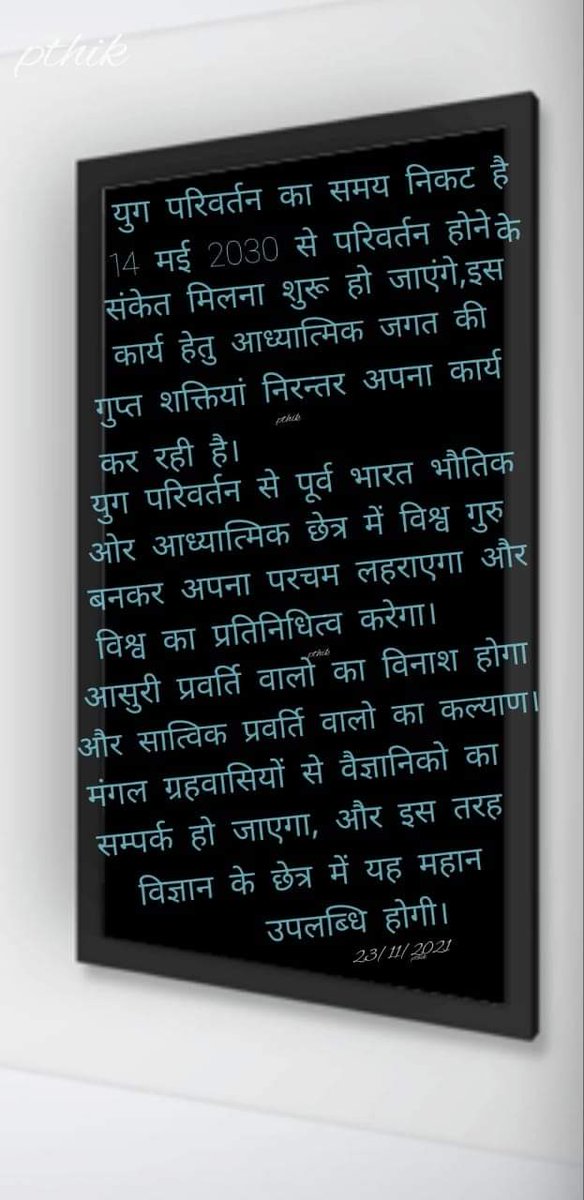 pthik
युग परिवर्तन का समय निकट है
14 मई 2030 से परिवर्तन होने के
संकेत मिलना शुरू हो जाएंगे,इस
कार्य हेतु आध्यात्मिक जगत की
गुप्त शक्तियां निरन्तर अपना कार्य
pthik
कर रही है।
युग परिवर्तन से पूर्व भारत भौतिक
ओर आध्यात्मिक छेत्र में विश्व गुरु
बनकर अपना परचम लहराएगा और
विश्व का प्रतिनिधित्व करेगा।
pthik
आसुरी प्रवर्ति वालो का विनाश होगा
और सात्विक प्रवर्ति वालो का कल्याण।
मंगल ग्रहवासियों से वैज्ञानिको का
सम्पर्क हो जाएगा, और इस तरह
विज्ञान के छेत्र में यह महान
उपलब्धि होगी।
23/11/2021
pthik